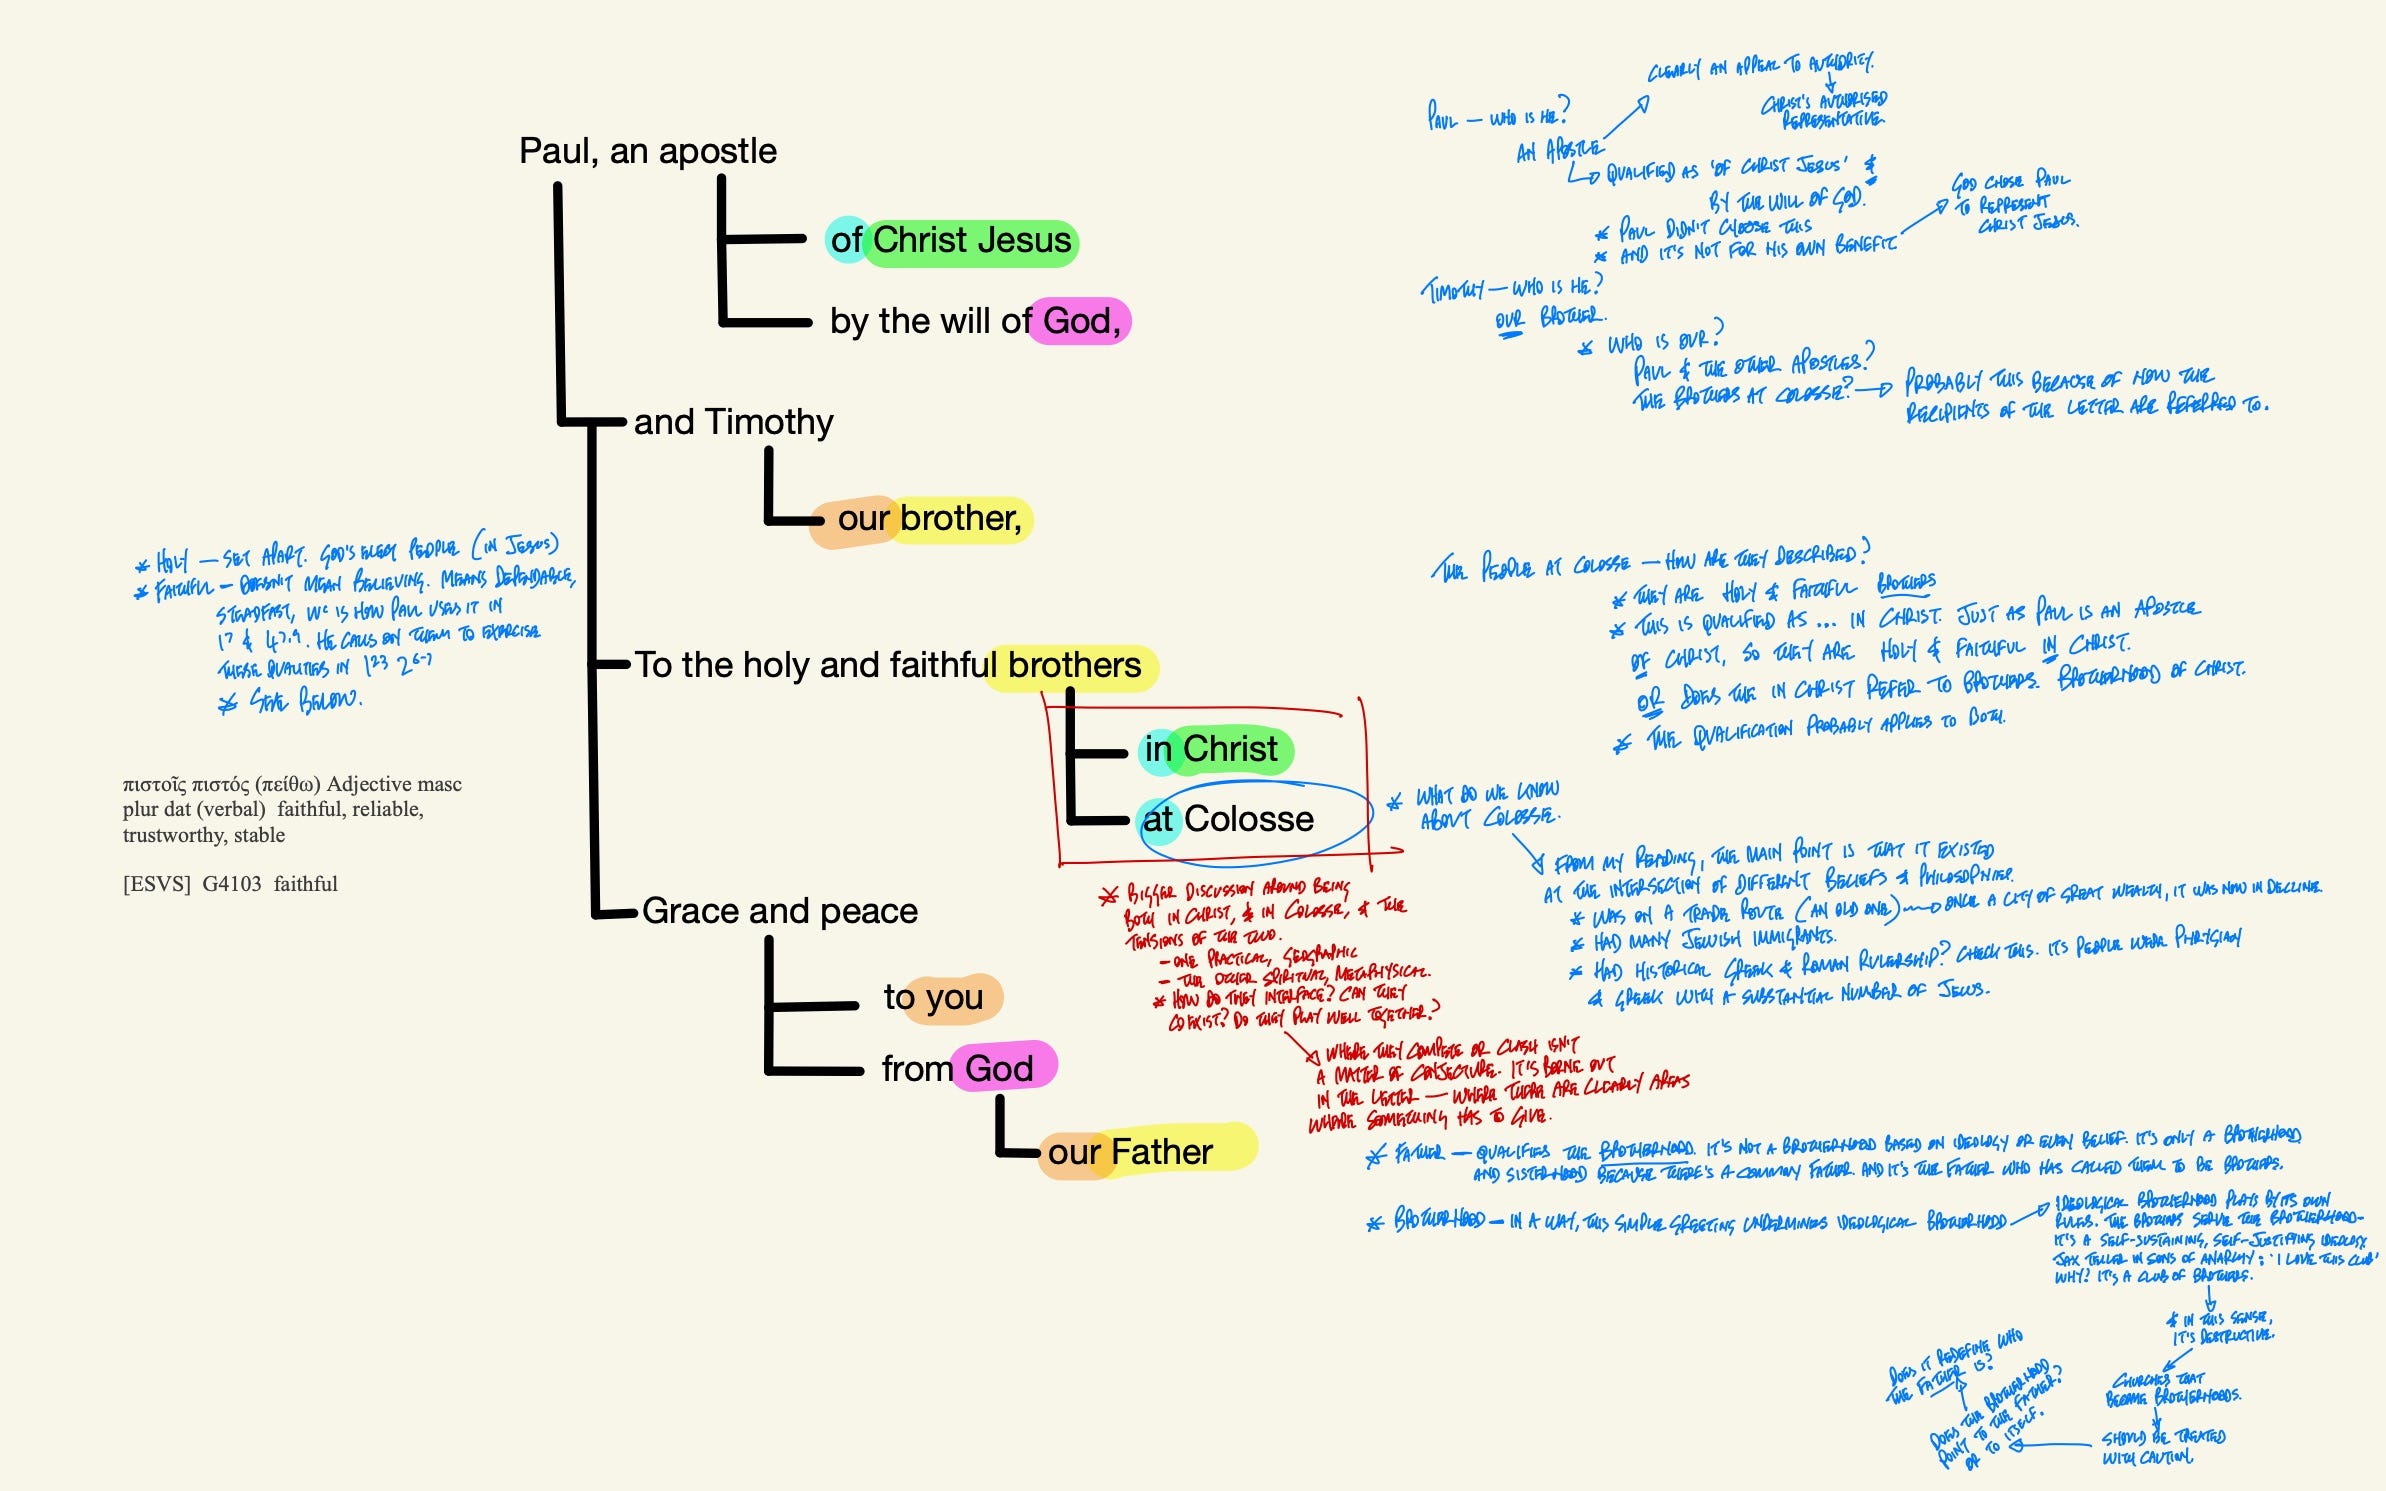 Paul, an apostle
of Christ Jesus
by the will of God,
and Timothy
our brother,
To the holy and faithful brothers
in Christ
at Colosse
Grace and peace
to you
from God
our Father
* HOLY — SET APART. GOD'S ELECT PEOPLE (IN JESUS)
* FAITHFUL — DOESN'T MEAN BELIEVING. MEANS DEPENDABLE,
STEADFAST, WC IS HOW PAUL USES IT IN
1⁷ & 4⁷,⁹. HE CALLS ON THEM TO EXERCISE
THESE QUALITIES IN 1²³ 2⁶⁻⁷
* SEE BELOW.
πιστοῖς πιστός (πείθω) Adjective masc
plur dat (verbal)  faithful, reliable,
trustworthy, stable
[ESVS]  G4103  faithful
PAUL — WHO IS HE?
AN APOSTLE
CLEARLY AN APPEAL TO AUTHORITY.
CHRIST'S AUTHORISED
REPRESENTATIVE.
QUALIFIED AS 'OF CHRIST JESUS' &
BY THE WILL OF GOD.
* PAUL DIDN'T CHOOSE THIS
* AND IT'S NOT FOR HIS OWN BENEFIT
GOD CHOSE PAUL
TO REPRESENT
CHRIST JESUS.
TIMOTHY — WHO IS HE?
OUR BROTHER.
* WHO IS OUR?
PAUL & THE OTHER APOSTLES?
THE BROTHERS AT COLOSSE?
PROBABLY THIS BECAUSE OF HOW THE
RECIPIENTS OF THE LETTER ARE REFERRED TO.
THE PEOPLE AT COLOSSE — HOW ARE THEY DESCRIBED?
* THEY ARE HOLY & FAITHFUL BROTHERS
* THIS IS QUALIFIED AS ... IN CHRIST. JUST AS PAUL IS AN APOSTLE
OF CHRIST, SO THEY ARE HOLY & FAITHFUL IN CHRIST.
OR DOES THE IN CHRIST REFER TO BROTHERS. BROTHERHOOD OF CHRIST.
* THE QUALIFICATION PROBABLY APPLIES TO BOTH.
* WHAT DO WE KNOW
ABOUT COLOSSE.
FROM MY READING, THE MAIN POINT IS THAT IT EXISTED
AT THE INTERSECTION OF DIFFERENT BELIEFS & PHILOSOPHIES.
* WAS ON A TRADE ROUTE (AN OLD ONE)
ONCE A CITY OF GREAT WEALTH, IT WAS NOW IN DECLINE.
* HAD MANY JEWISH IMMIGRANTS.
* HAD HISTORICAL GREEK & ROMAN RULERSHIP? CHECK THIS. ITS PEOPLE WERE PHRYGIAN
& GREEK WITH A SUBSTANTIAL NUMBER OF JEWS.
* BIGGER DISCUSSION AROUND BEING
BOTH IN CHRIST, & IN COLOSSE, & THE
TENSIONS OF THE TWO.
— ONE PRACTICAL, GEOGRAPHIC
— THE OTHER SPIRITUAL, METAPHYSICAL.
* HOW DO THEY INTERFACE? CAN THEY
COEXIST? DO THEY PLAY WELL TOGETHER?
WHERE THEY COMPETE OR CLASH ISN'T
A MATTER OF CONJECTURE. IT'S BORNE OUT
IN THE LETTER — WHERE THERE ARE CLEARLY AREAS
WHERE SOMETHING HAS TO GIVE.
* FATHER — QUALIFIES THE BROTHERHOOD. IT'S NOT A BROTHERHOOD BASED ON IDEOLOGY OR EVEN BELIEF. IT'S ONLY A BROTHERHOOD
AND SISTERHOOD BECAUSE THERE'S A COMMON FATHER. AND IT'S THE FATHER WHO HAS CALLED THEM TO BE BROTHERS.
* BROTHERHOOD — IN A WAY, THIS SIMPLE GREETING UNDERMINES IDEOLOGICAL BROTHERHOOD
IDEOLOGICAL BROTHERHOOD PLAYS BY ITS OWN
RULES. THE BROTHERS SERVE THE BROTHERHOOD—
IT'S A SELF-SUSTAINING, SELF-JUSTIFYING IDEOLOGY.
JAX TELLER IN SONS OF ANARCHY: 'I LOVE THIS CLUB'
WHY? IT'S A CLUB OF BROTHERS.
& IN THIS SENSE,
IT'S DESTRUCTIVE.
CHURCHES THAT
BECOME BROTHERHOODS.
SHOULD BE TREATED
WITH CAUTION.
DOES THE BROTHERHOOD
POINT TO THE FATHER?
OR TO ITSELF.
DOES IT REDEFINE WHO
THE FATHER IS?